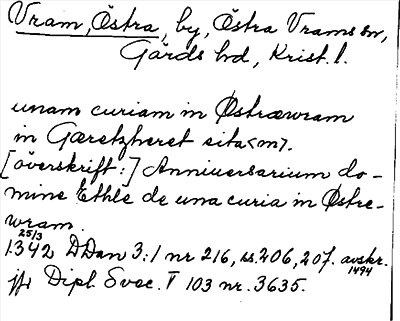 Vram, Östra, by, Östra Vrams sn,
Gärds hd, Krist. l.
unam curiam in Østræwram
in Gæretzheret sita<m>.
[överskrift:] Anniuersarium do-
mine Ethle de una curia in Østre-
wram.
25/3
1342 DDan 3:1 nr 216, ss. 206, 207. avskr.
1494
jfr Dipl. Svec. V 103 nr. 3635.